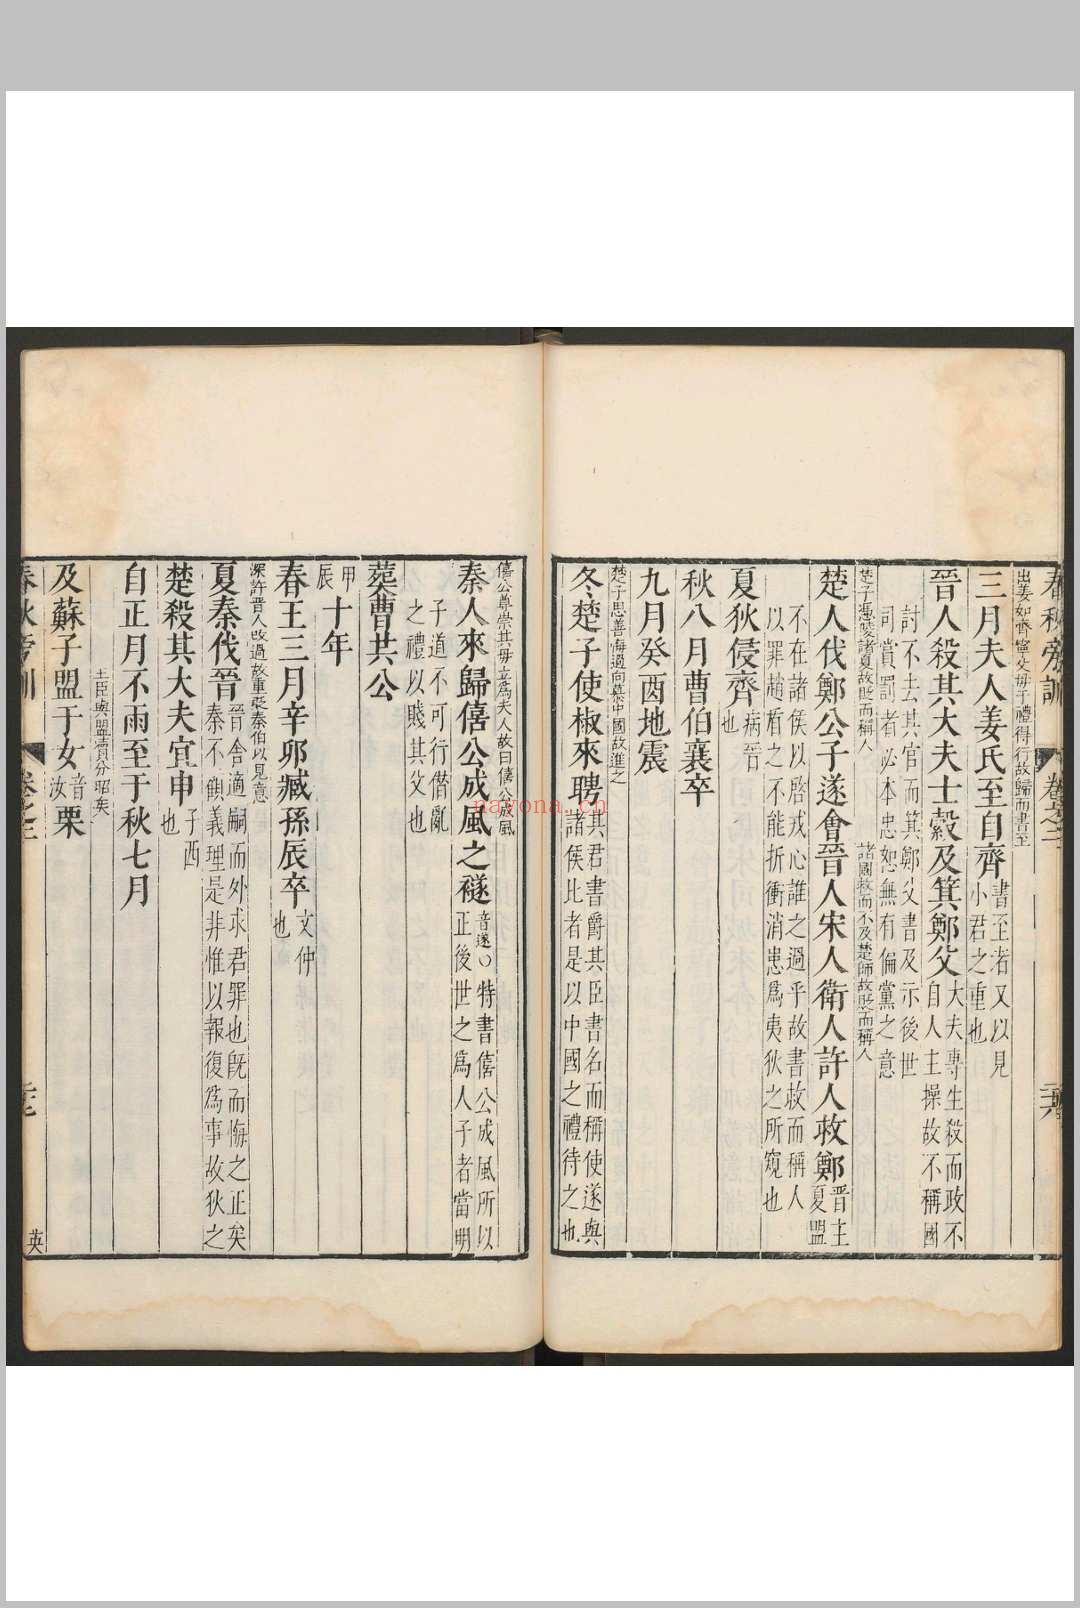 春秋旁訓 卷之二 二十六
出姜如齊寧父母于禮得行故歸而書至
三月夫人姜氏至自齊 書至者又以見小君之重也
晉人殺其大夫士縠及箕鄭父 大夫專生殺而政不自人主操故不稱國
討不去其官而箕鄭父書及示後世
司賞罰者必本忠恕無有偏黨之意
楚子憑陵諸夏故貶而稱人 諸國救而不及楚師故貶而稱人
楚人伐鄭公子遂會晉人宋人衛人許人救鄭 晉主夏盟
不在諸侯以啓戎心誰之過乎故書救而稱人
以罪趙盾之不能折衝消患爲夷狄之所窺也
夏狄侵齊 病晉也
秋八月曹伯襄卒
九月癸酉地震
楚子思善悔過向慕中國故進之
冬楚子使椒來聘 其君書爵其臣書名而稱使遂與諸侯比者是以中國之禮待之也
僖公尊崇其母立爲夫人故曰僖公成風
秦人來歸僖公成風之襚 音遂○特書僖公成風所以正後世之爲人子者當明
子道不可行僭亂
之禮以賤其父也
葬曹共公
甲辰 十年
春王三月辛卯臧孫辰卒 文仲也
深許晉人改過故重貶秦伯以見意
夏秦伐晉 晉舍適嗣而外求君罪也旣而悔之正矣秦不顧義理是非惟以報復爲事故狄之
楚殺其大夫宜申 子西也
自正月不雨至于秋七月
王臣與盟瀆分昭矣
及蘇子盟于女栗 音汝
春秋旁訓 卷之二 二十七 英
nayona.cn